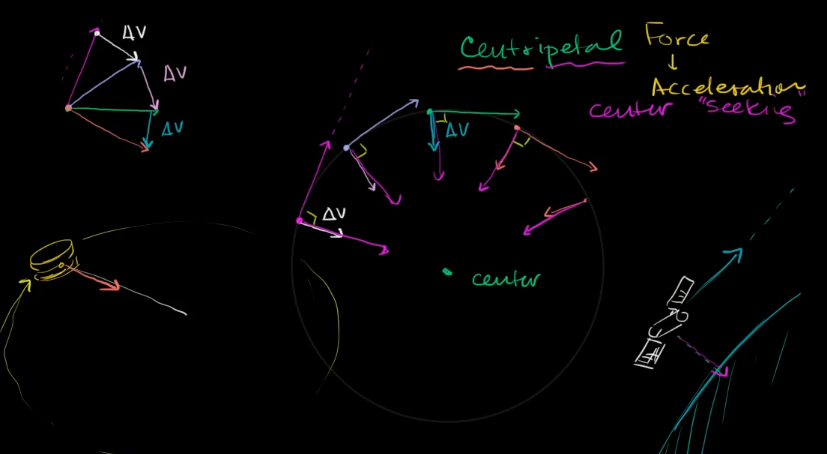 ΔV
ΔV
ΔV
Centripetal Force
Acceleration
center "seeking"
ΔV
ΔV
center